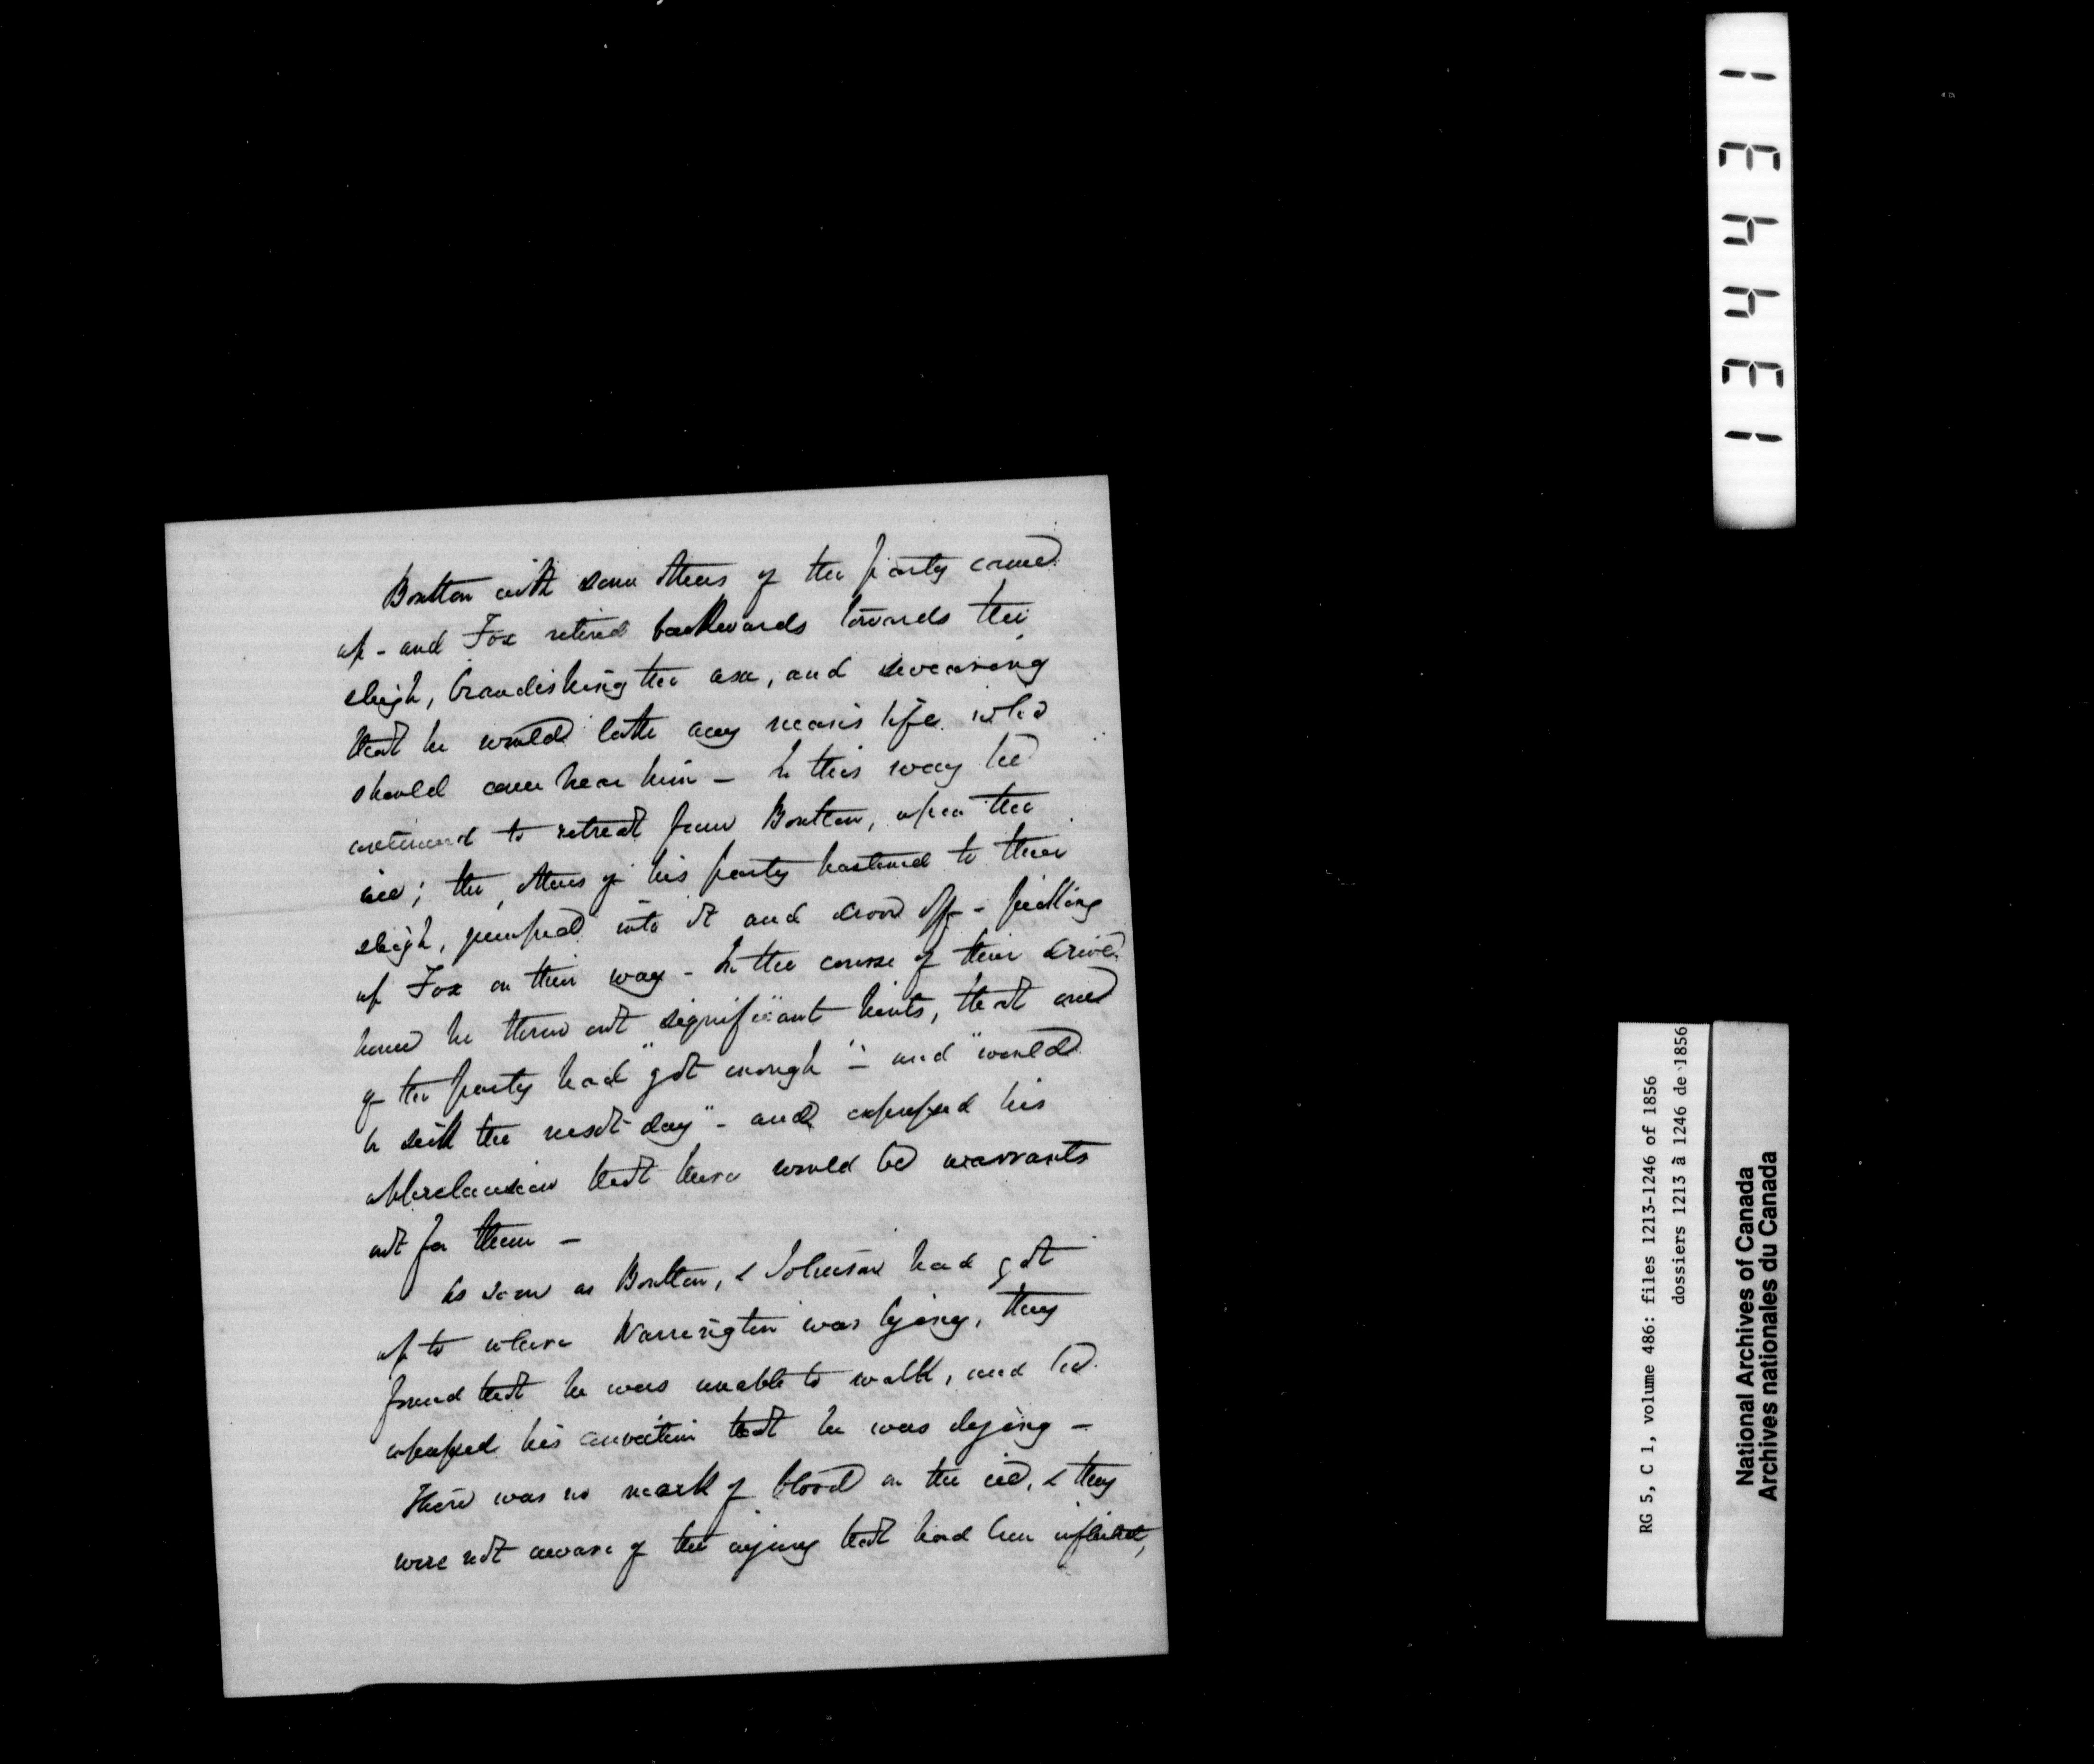 Boulton with some others of the party came
up - and Fox retired backwards towards the
sleigh, brandishing the axe, and swearing
that he would take any man's life who
should come near him - In this way he
continued to retreat from Boulton, upon the
ice; the others of his party hastened to their
sleigh, jumped into it and drove off - picking
up Fox on their way - In the course of their drive
home he threw out significant hints, that one
of the party had "got enough" - and "would
be sick the next day" - and expressed his
apprehension that there would be warrants
out for them -
As soon as Boulton, & Johnson had got
up to where Warrington was lying, they
found that he was unable to walk, and he
expressed his conviction that he was dying -
There was no mark of blood on the ice, & they
were not aware of the injury that had been inflicted,
134431
RG 5, C 1, volume 486: files 1213-1246 of 1856
dossiers 1213 à 1246 de 1856
National Archives of Canada
Archives nationales du Canada